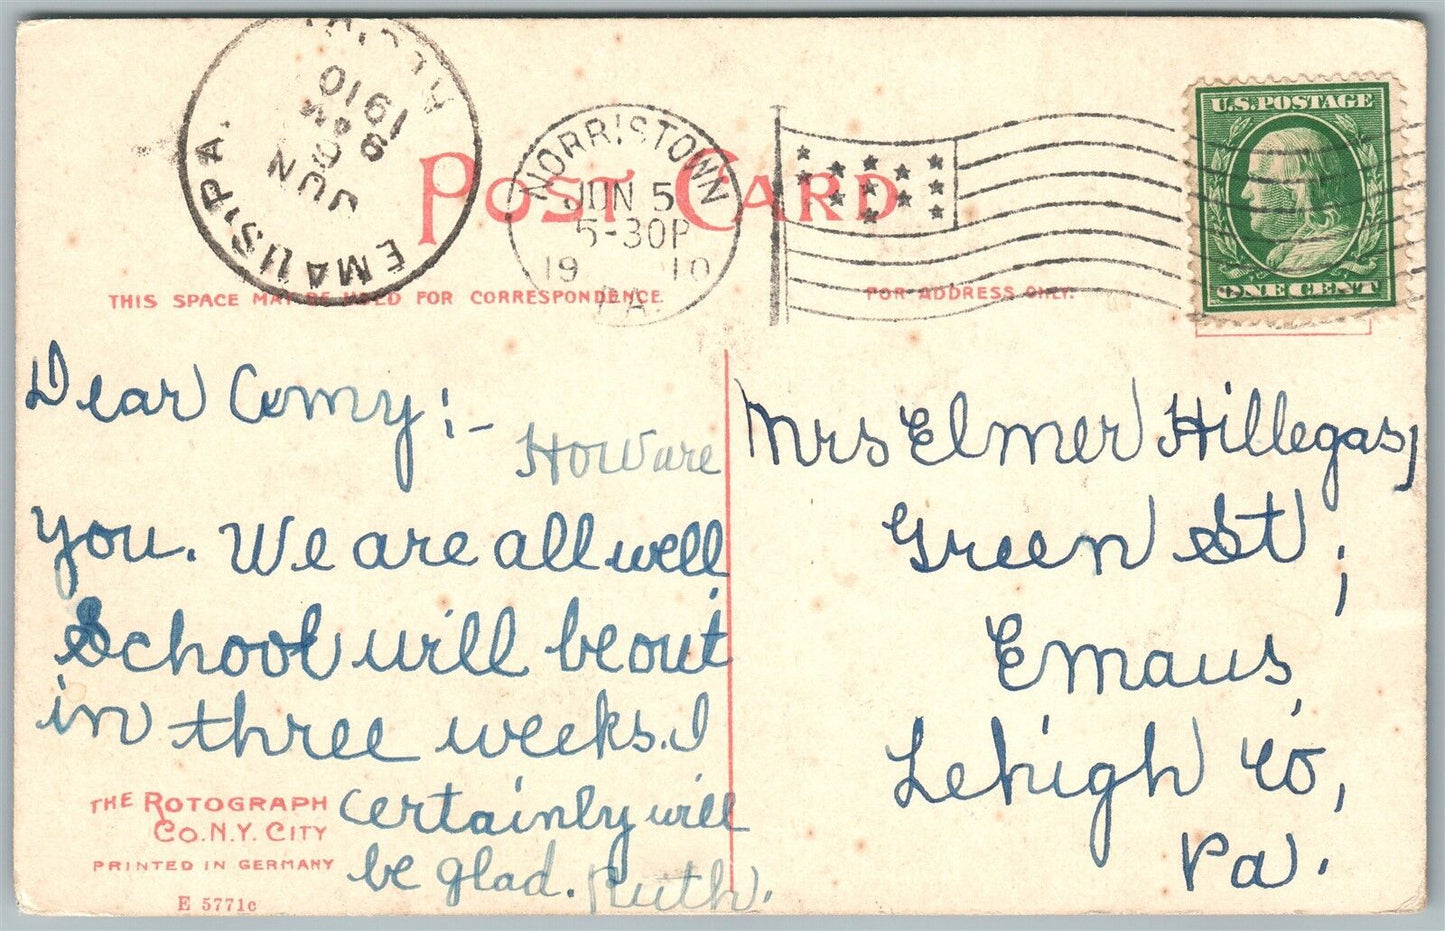 EMAUS, PA.
JUN
6
1910
NORRISTOWN
JUN 5
5-30P
19 10
PA.
U.S. POSTAGE
ONE CENT
POST CARD
THIS SPACE MAY BE USED FOR CORRESPONDENCE
FOR ADDRESS ONLY.
Dear Comy:-
How are
you. We are all well
School will be out
in three weeks. I
certainly will
be glad. Ruth.
Mrs Elmer Hillegas,
Green St,
Emaus,
Lehigh Co,
Pa.
THE ROTOGRAPH
CO. N.Y. CITY
PRINTED IN GERMANY
E 5771c